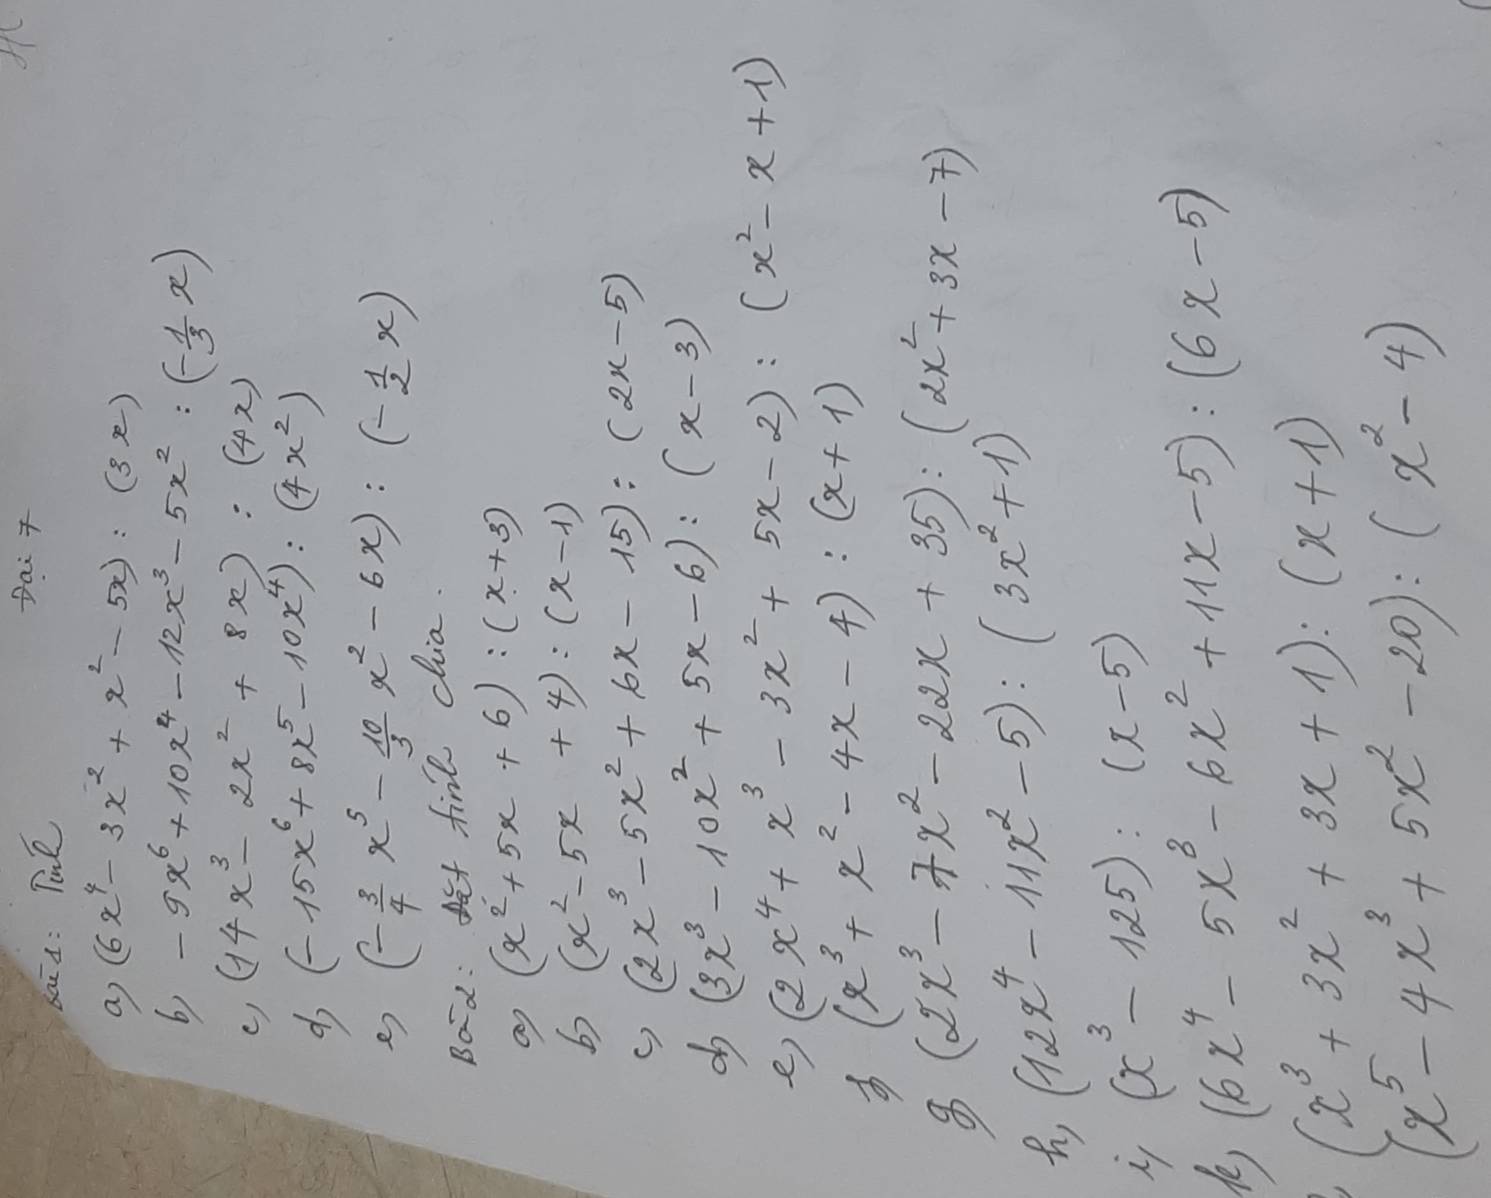 Đại 7
Bài 1: Tính
a) (6x⁴ - 3x² + x² - 5x) : (3x)
b) - 9x⁶ + 10x⁴ - 12x³ - 5x² : (-1/3 x)
c) (14x³ - 2x² + 8x) : (4x)
d) (-15x⁶ + 8x⁵ - 10x⁴) : (4x²)
e) (-3/4 x⁵ - 10/3 x² - 6x) : (-1/2 x)
Bài 2: Đặt tính chia.
a) (x² + 5x + 6) : (x + 3)
b) (x² - 5x + 4) : (x - 1)
c) (2x³ - 5x² + 6x - 15) : (2x - 5)
d) (3x³ - 10x² + 5x - 6) : (x - 3)
e) (2x⁴ + x³ - 3x² + 5x - 2) : (x² - x + 1)
f) (x³ + x² - 4x - 4) : (x + 1)
g) (2x³ - 7x² - 22x + 35) : (2x² + 3x - 7)
h) (12x⁴ - 11x² - 5) : (3x² + 1)
i) (x³ - 125) : (x - 5)
k) (6x⁴ - 5x³ - 6x² + 11x - 5) : (6x - 5)
(x³ + 3x² + 3x + 1) : (x + 1)
(x⁵ - 4x³ + 5x² - 20) : (x² - 4)